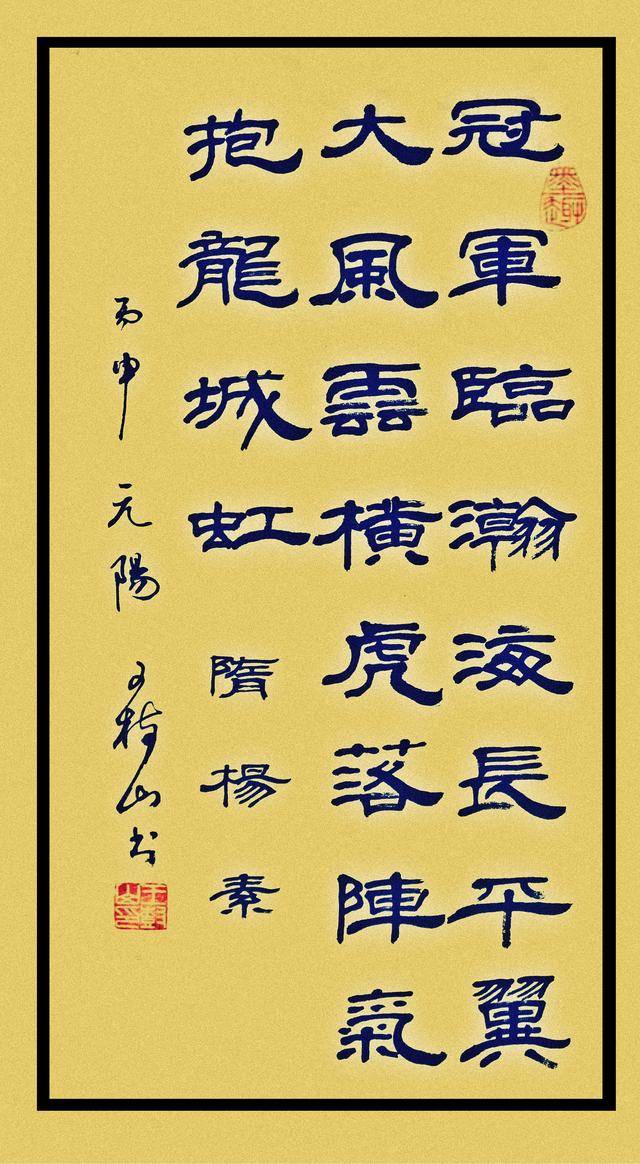 冠軍臨瀚海長平翼
大風雲橫虎落陣氣
抱龍城虹 隋楊素
丙申 元陽 王特山书